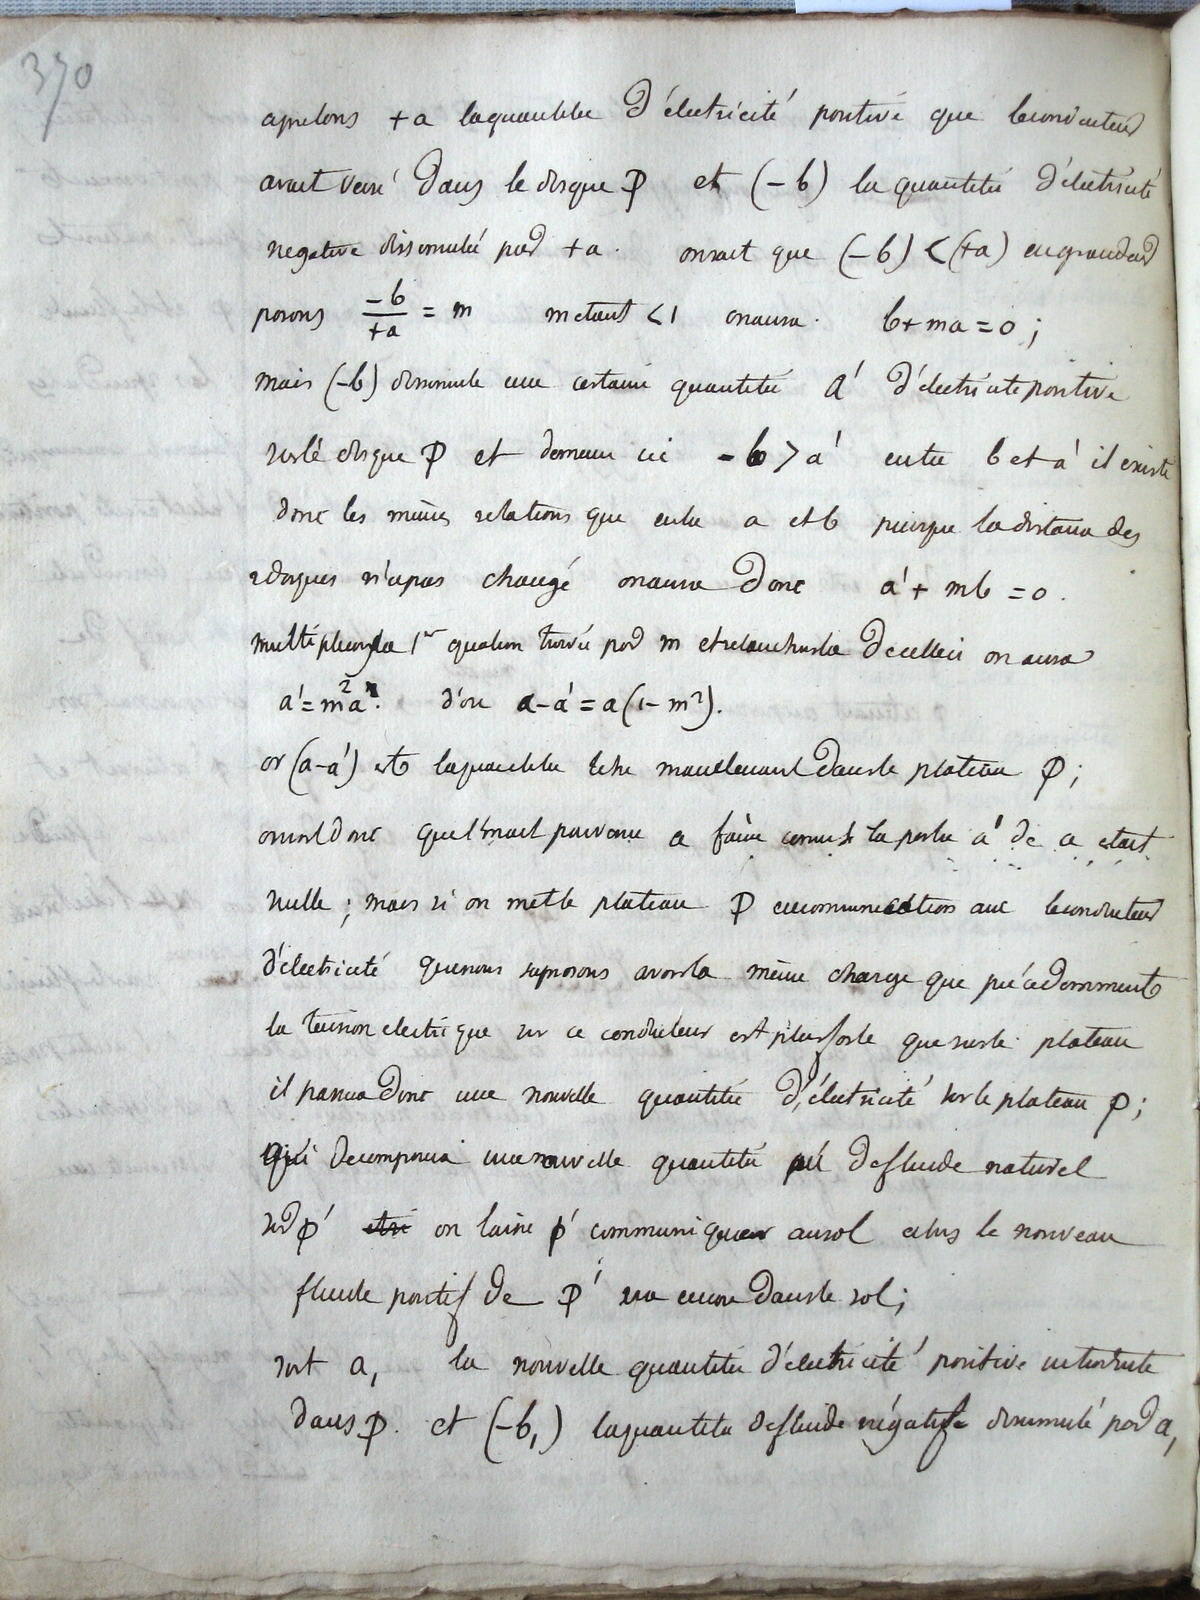 370
apelons +a laquantitée d'électricité positive que leconducteur
avait versé dans le disque P et (-b) la quantitée d'électricité
negative dissimulée par +a. onsait que (-b) < (+a) engrandeur
posons -b/+a = m metant <1 onaura. b+ma=0;
mais (-b) dissimule une certaine quantitée a' d'électricitépositive
surle disque P et demeure ici -b > a' entre b et a' il existe
donc les mêmes relations que entre a et b puisque la distance des
2disques n'apas changé onaura donc a'+ mb =0.
multiplionsla 1re equation trouvée par m etretranchonsla decelleci on aura
a'=m²a. d'ou a-a'=a(1-m²).
or (a-a') est laquantitée libre maintenant dansle plateau P;
onvoitdonc quel'onest parvenu a faire comme si la perte a' de a etait
nulle; mais si on metle plateau P encommunication avec leconducteur
d'électricité quenous suposons avoirla même charge que précedemment
la tension electrique sur ce conducteur est plusforte que surle plateau
il passeradonc une nouvelle quantitée d'électricité surle plateau P;
qui decomposera unenouvelle quantitée de fluide naturel
sur P' on laisse P' communiquer ausol alors le nouveau
fluide positif de P' ira encore dansle sol;
soit a, la nouvelle quantitée d'électricité positive introduite
dans P. et (-b,) laquantitée defluide négatif dissimulé par a,